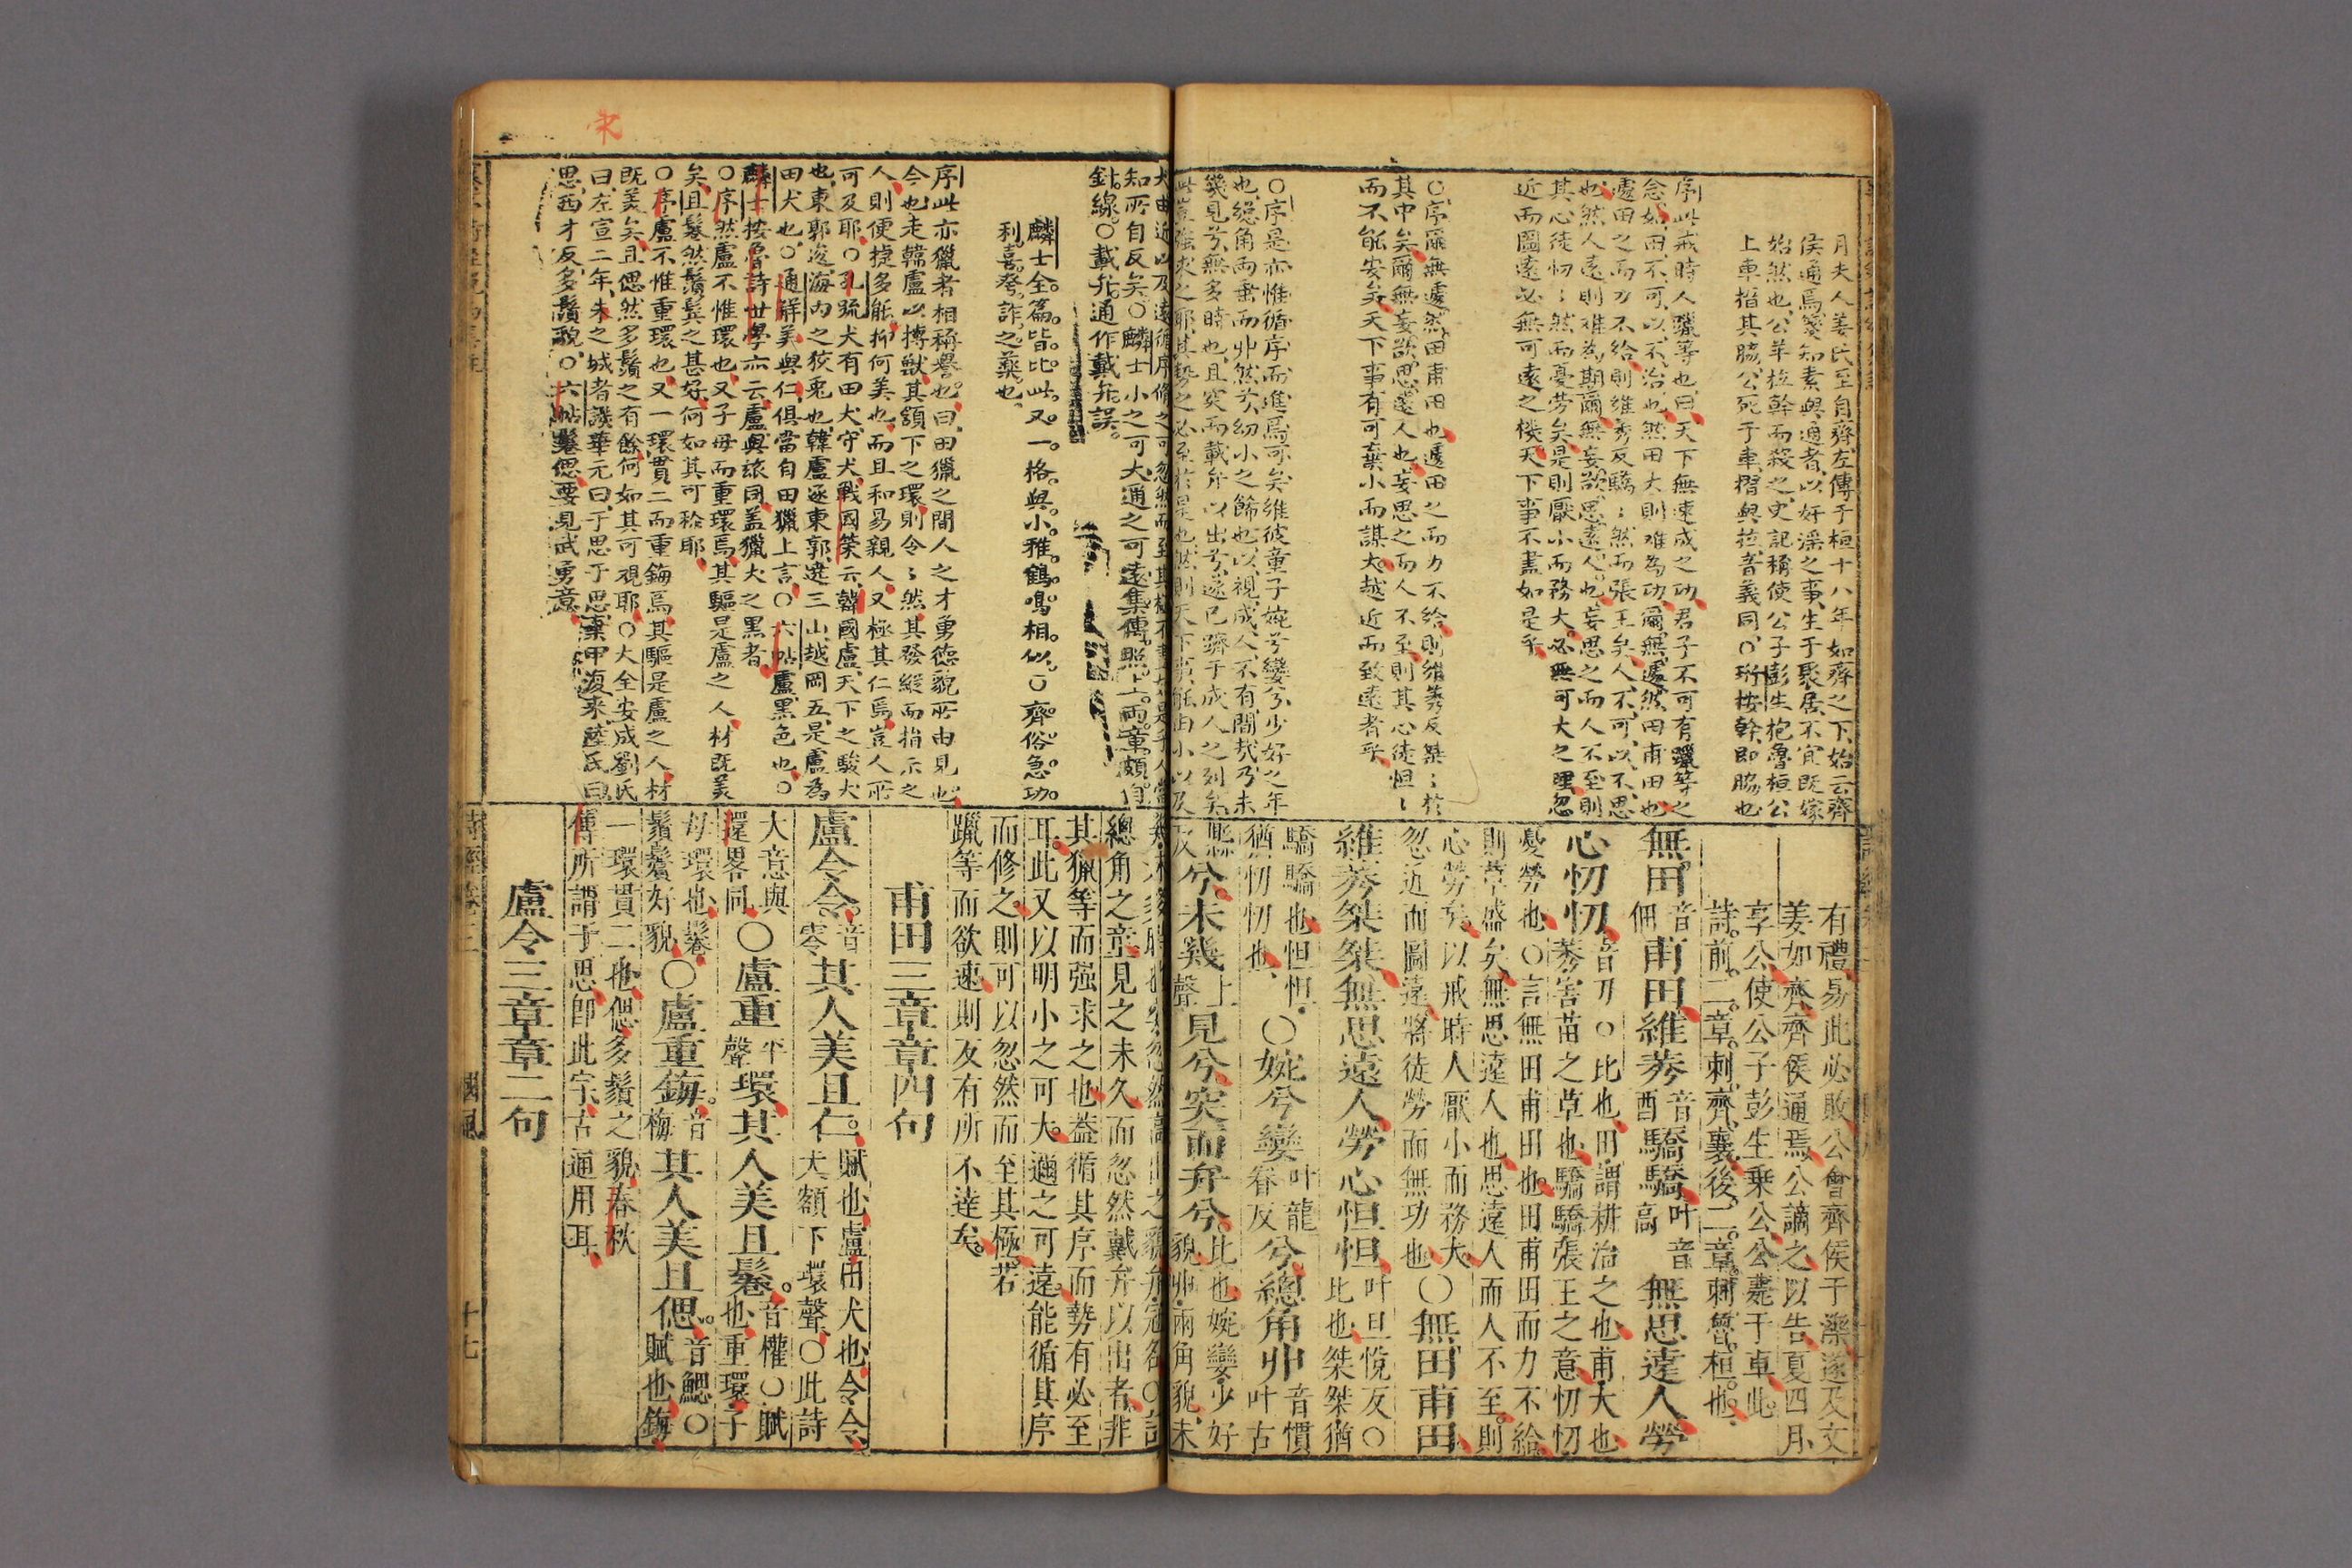 月夫人姜氏至自齊左傳于桓十八年如齊之下始云齊
侯通焉箋知素與通者以奸淫之事生于聚居不宜既嫁
始然也公羊拉幹而殺之史記稱使公子彭生抱魯桓公
上車摺其脇公死于車摺與拉音義同○珩按幹即脇也
序此戒時人躐等也曰天下無速成之功君子不可有躐等之
念如田不可以不治也然田大則难為功爾無遽然田甫田也
遽田之而力不給則維莠反驕驕然而張王矣人不可以不思
也然人遠則难為期爾無妄欲思遠人也妄思之而人不至則
其心徒忉忉然而憂劳矣是則厭小而務大必無可大之理忽
近而圖遠必無可遠之機天下事不盡如是乎
○序爾無遽然田甫田也遽田之而力不給則維莠反桀桀於
其中矣爾無妄欲思遠人也妄思之而人不至則其心徒怛怛
而不能安矣天下事有可棄小而謀大越近而致遠者乎
○序是亦惟循序而進焉可矣維彼童子婉兮孌兮少好之年
也總角而丱然兮幼小之飾也以視成人不有間哉乃未
幾見兮無多時也且突而載弁以出兮遂已躋于成人之列矣
此豈强求之耶其勢之必至於是也然則天下事能由小以及
知所自反矣○麟士小之可大通之可遠集傳照上兩章頗自
針線○載弁通作戴弁誤
麟士全篇皆比此又一格與小雅鶴鳴相似○齊俗急功
利喜夸詐之藥也
序此亦獵者相稱譽也曰田獵之間人之才勇德貌所由見也
今也走韓盧以搏獸其頷下之環則令令然其發縱而指示之
人則便捷多能抑何美也而且和易親人又極其仁焉豈人所
可及耶○孔疏犬有田犬守犬戰國策云韓國盧天下之駿犬
也東郭逡海内之狡兎也韓盧逐東郭遶三山越岡五是盧為
田犬也○通解美與仁俱當自田獵上言○六帖盧黑色也○
麟士按魯詩世學亦云盧與旅同盖獵犬之黑者
○序然盧不惟環也又子母而重環焉其驅是盧之人材既美
矣且鬈然鬚鬂之甚好何如其可称耶
○序盧不惟重環也又一環貫二而重鋂焉其驅是盧之人材
既美矣且偲然多鬚之有餘何如其可視耶○大全安成劉氏
曰左宣二年朱之城者譏華元曰于思于思棄甲復来陸氏曰
思西才反多鬚貌○六帖鬈偲要見武勇意
有禮易此必敗公會齊侯于濼遂及文
姜如齊齊侯通焉公謫之以告夏四月
享公使公子彭生乗公公薨于車此
詩前二章刺齊襄後二章刺魯桓也
無田音佃甫田維莠音酉驕驕叶音高無思遠人勞
心忉忉音刀○比也田謂耕治之也甫大也
莠害苗之草也驕驕張王之意忉忉
憂勞也○言無田甫田也田甫田而力不給
則草盛矣無思遠人也思遠人而人不至則
心勞矣以戒時人厭小而務大
忽近而圖遠將徒勞而無功也○無田甫田
維莠桀桀無思遠人勞心怛怛叶旦悅反○
比也桀桀猶
驕驕也怛怛
猶忉忉也○婉兮孌叶龍眷反兮總角丱音慣叶古
縣反兮未幾上聲見兮突而弁兮比也婉孌少好
貌丱兩角貌未
總角之童見之未久而忽然戴弁以出者非
其獵等而强求之也葢循其序而勢有必至
耳此又以明小之可大邇之可遠能循其序
而修之則可以忽然而至其極若
躐等而欲速則反有所不達矣
甫田三章章四句
盧令令音零其人美且仁賦也盧田犬也令令
犬頷下環聲○此詩
大意與
還畧同○盧重平聲環其人美且鬈音權○賦
也重環子
母環也鬈
鬚鬢好貌○盧重鋂音梅其人美且偲音鰓○
賦也鋂
一環貫二也偲多鬚之貌春秋
傳所謂于思即此字古通用耳
盧令三章章二句
國風
十七